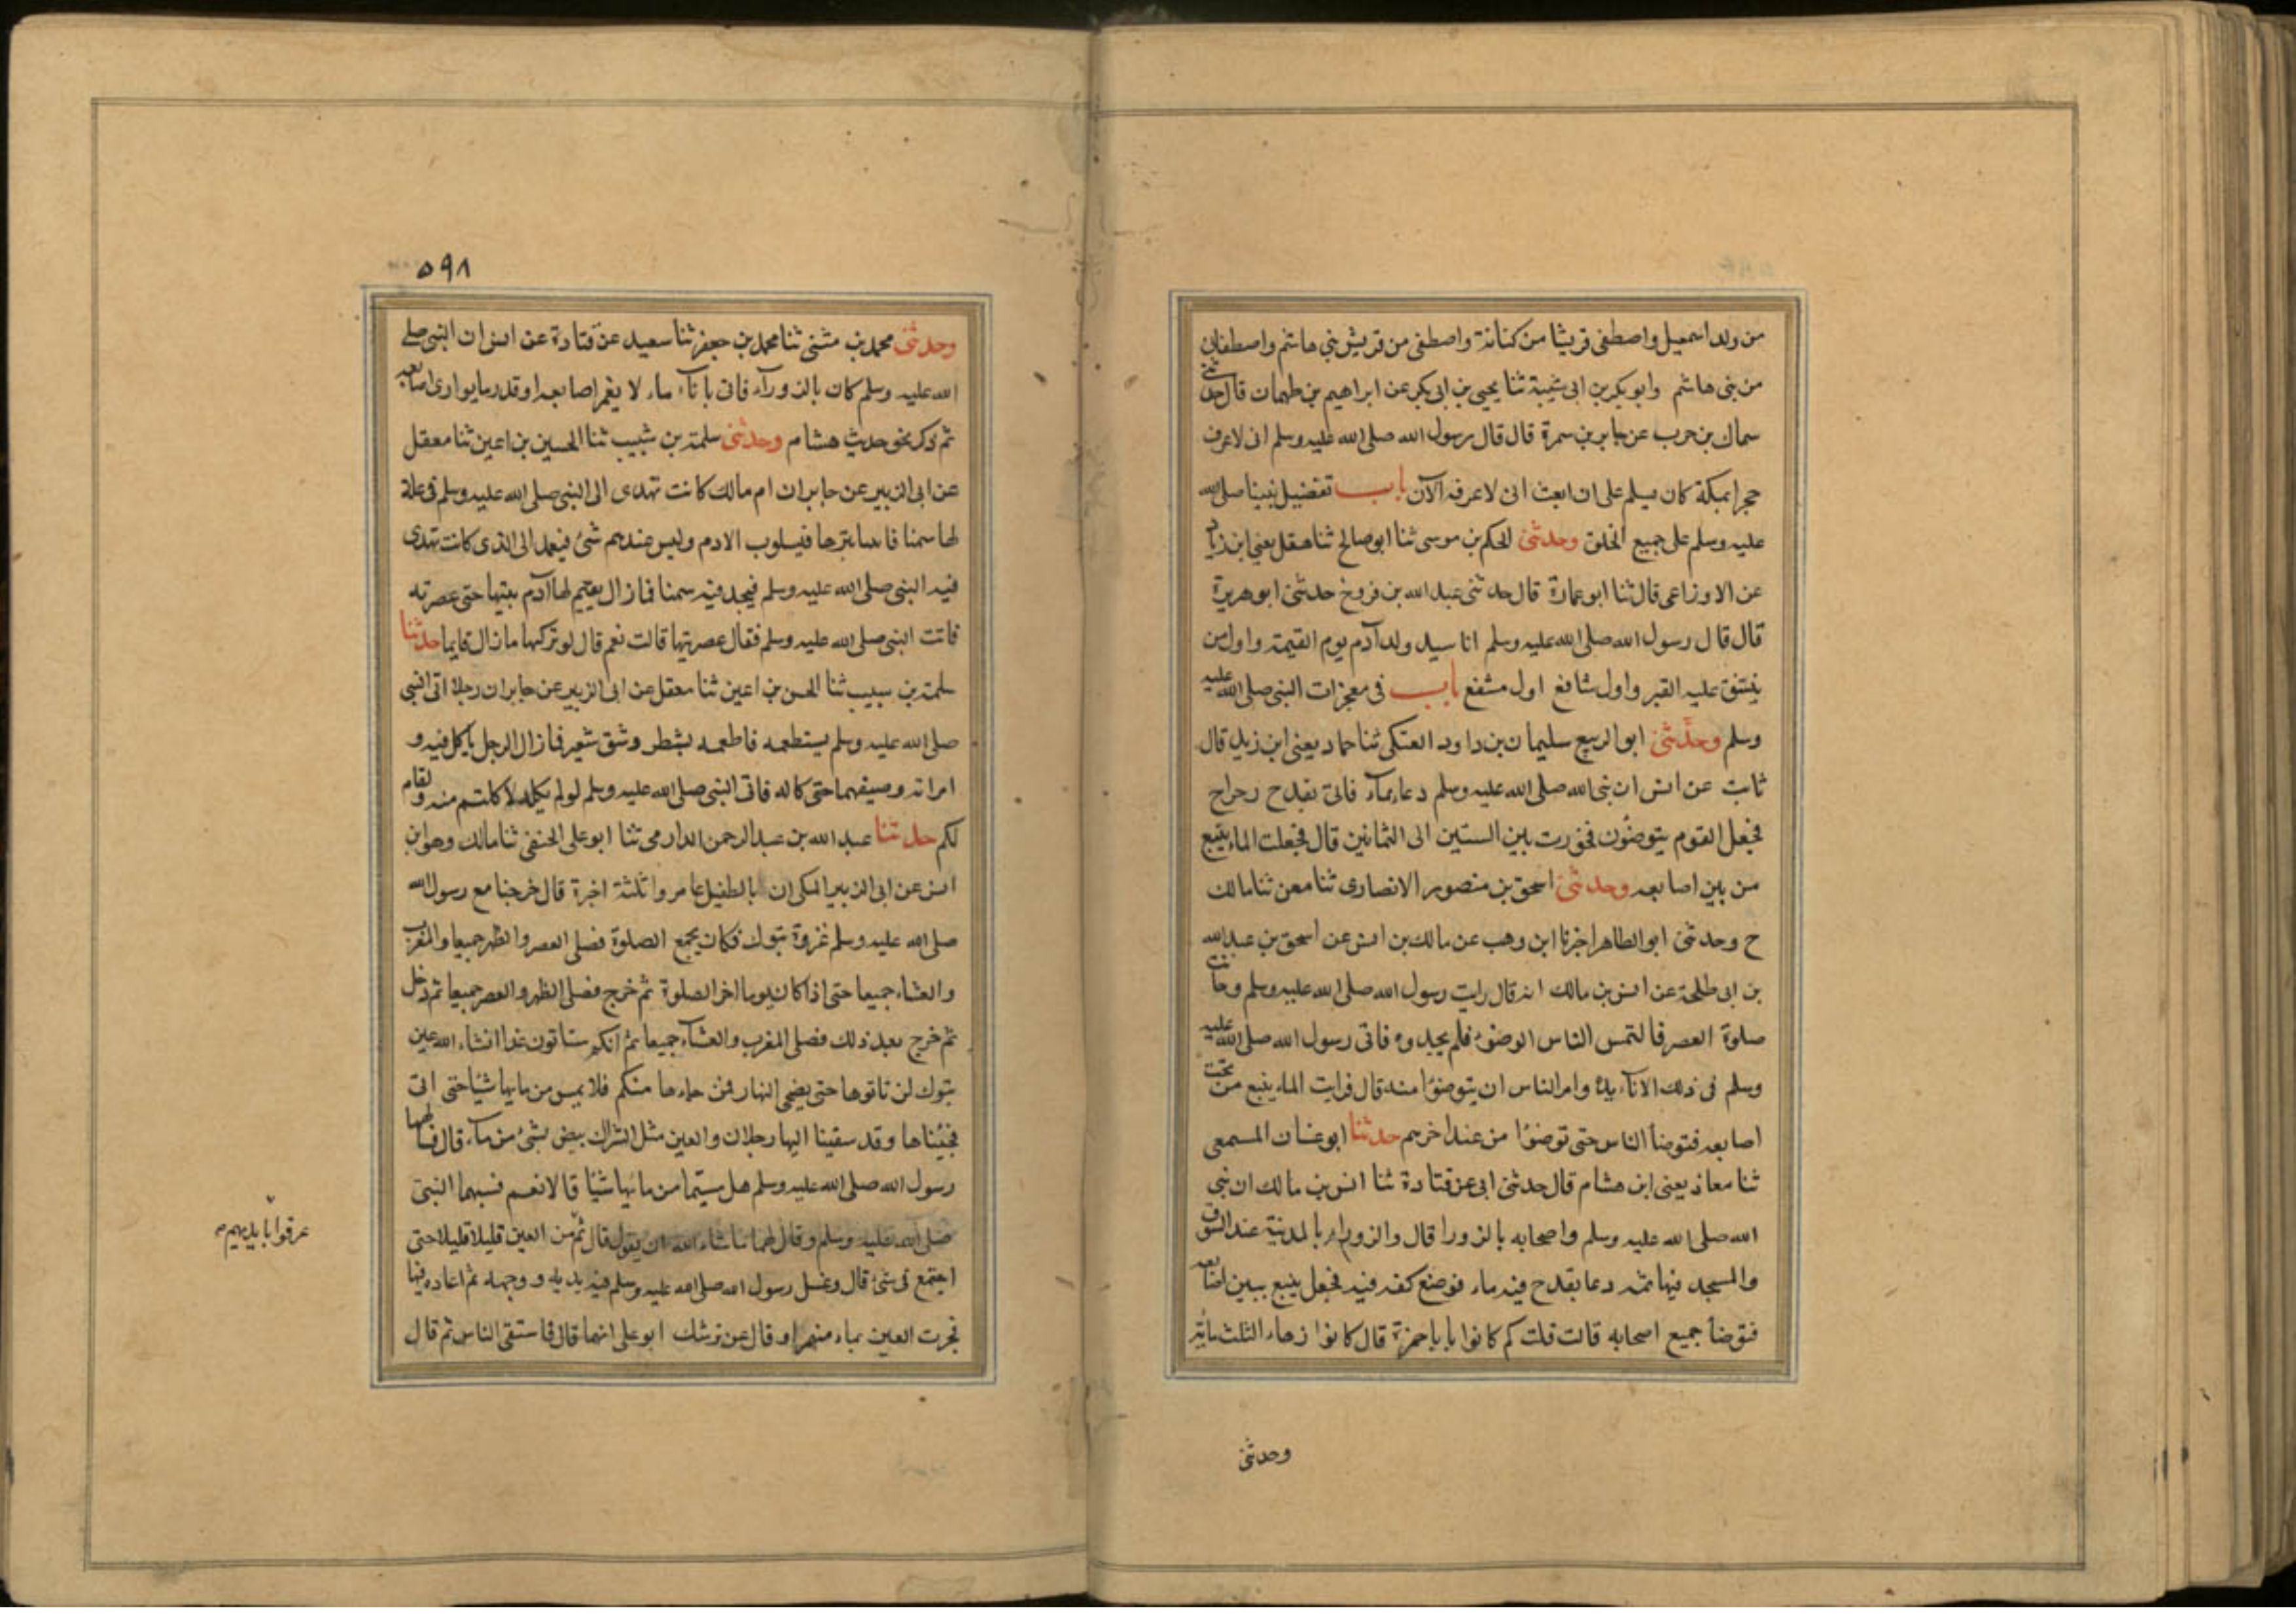 من ولد اسمعيل واصطفى قريشا من كنانة واصطفى من قريش بني هاشم واصطفاني
من بني هاشم وابو بكر بن ابى شيبة ثنا يحيى بن ابى بكر عن ابراهيم بن طهمان قال حدثني
سماك بن حرب عن جابر بن سمرة قال قال رسول الله صلى الله عليه وسلم انى لاعرف
حجرا بمكة كان يسلم على ان ابعث انى لاعرفه الآن باب تفضيل نبينا صلى الله
عليه وسلم على جميع الخلق وحدثنى الحكم بن موسى ثنا ابو صالح ثنا هقل يعني ابن زياد
عن الاوزاعى قال ثنا ابو عمارة قال حدثنى عبد الله بن فروخ حدثنى ابو هريرة
قال قال رسول الله صلى الله عليه وسلم انا سيد ولد آدم يوم القيمة واول من
ينشق عليه القبر واول شافع اول مشفع باب في معجزات النبى صلى الله عليه
وسلم وحدثنى ابو الربيع سليمان بن داود العتكى ثنا حماد يعنى ابن زيد قال
ثابت عن انس ان نبى الله صلى الله عليه وسلم دعا بماء فاتى بقدح رحراح
فجعل القوم يتوضئون فحزرت بين الستين الى الثمانين قال فجعلت الماء ينبع
من بين اصابعه وحدثنى اسحق بن منصور الانصارى ثنا معن ثنا مالك
ح وحدثنى ابو الطاهر اخبرنا ابن وهب عن مالك بن انس عن اسحق بن عبد الله
بن ابى طلحة عن انس بن مالك انه قال رايت رسول الله صلى الله عليه وسلم وحانت
صلوة العصر فالتمس الناس الوضوء فلم يجدوه فاتى رسول الله صلى الله عليه
وسلم فى ذلك الاناء يده وامر الناس ان يتوضؤا منه قال فرايت الماء ينبع من تحت
اصابعه فتوضأ الناس حتى توضؤا من عند اخرهم حدثنا ابو غسان المسمعى
ثنا معاذ يعنى ابن هشام قال حدثنى ابى عن قتادة ثنا انس بن مالك ان نبى
الله صلى الله عليه وسلم واصحابه بالزورا قال والزوراء بالمدينة عند السوق
والمسجد فيها ثمه دعا بقدح فيه ماء فوضع كفه فيه فجعل ينبع بين اصابعه
فتوضأ جميع اصحابه قالت قلت كم كانوا يا باحمزة قال كانوا زهاء الثلث مائة
وحدثنى
٥٩٨
وحدثنى محمد بن مثنى ثنا محمد بن جعفر ثنا سعيد عن قتادة عن انس ان النبى صلى
الله عليه وسلم كان بالزوراء فاتى باناء ماء لا يغمر اصابعه او قدر ما يوارى اصابعه
ثم ذكر نحو حديث هشام وحدثنى سلمة بن شبيب ثنا الحسين بن اعين ثنا معقل
عن ابى الزبير عن جابر ان ام مالك كانت تهدى الى النبى صلى الله عليه وسلم فى عكة
لها سمنا الادم وليس عندهم شئ فيعمد الى الذى كانت تهدى
فيه النبى صلى الله عليه وسلم فيجد فيه سمنا فما زال يقيم لها آدم بيتها حتى عصرته
فاتت النبى صلى الله عليه وسلم فقال عصرتيها قالت نعم قال لو تركيها ما زال قايما حدثنا
سلمة بن سبيب ثنا الحسن بن اعين ثنا معقل عن ابى الزبير عن جابر ان رجلا اتى النبى
صلى الله عليه وسلم يستطعمه فاطعمه بشطر وشق شعير فما زال الرجل ياكل فيه و
امراته وصيفهما حتى كاله فاتى النبى صلى الله عليه وسلم لو لم تكله لاكلتم منه ولقام
لكم حدثنا عبد الله بن عبد الرحمن الدارمى ثنا ابو على الحنفى ثنا مالك وهو ابن
انس عن ابى الزبير المكى ان بالطفيل عامر واثلثة اخبرة قال خرجنا مع رسول الله
صلى الله عليه وسلم غزوة تبوك فكان يجمع الصلوة فصلى العصر والظهر جميعا والمغرب
والعشاء جميعا حتى اذا كان يوما اخر الصلوة ثم خرج فصلى الظهر والعصر جميعا ثم دخل
ثم خرج بعد ذلك فصلى المغرب والعشاء جميعا ثم انكم ستاتون غدا انشاء الله عين
تبوك لن تاتوها حتى يضحى النهار فمن جاءها منكم فلا يمس من مايها شيًا حتى اتى
فجئناها وقد سقينا اليها رجلان والعين مثل الشراك بيض بشئ من ماء قال فسالهما
رسول الله صلى الله عليه وسلم هل مسيتما من مائها شيًا قالا نعم فسبهما النبى
صلى الله عليه وسلم وقال لهما ما شاء الله ان يقول قال ثم من العين قليلا قليلا حتى
اجتمع فى شئ قال وغسل رسول الله صلى الله عليه وسلم فيه يديه ووجهه ثم اعاده فيها
فجرت العين بماء منهمر او قال عن نرشك ابو على ايهما قال فاستقى الناس ثم قال
عرفوا بايديهم